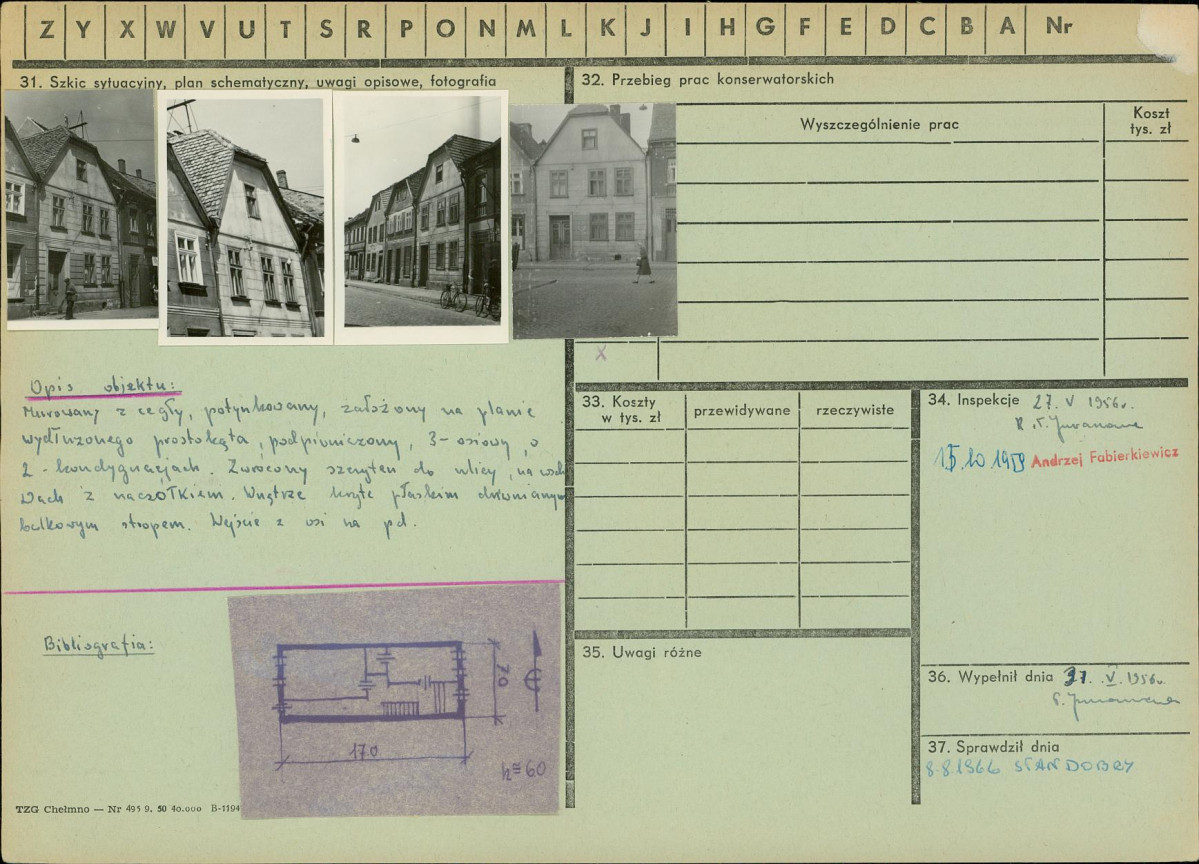 Z Y X W V U T S R P O N M L K J I H G F E D C B A Nr
31. Szkic sytuacyjny, plan schematyczny, uwagi opisowe, fotografia
32. Przebieg prac konserwatorskich
Wyszczególnienie prac
Koszt
tys. zł
x
Opis objektu:
Murowany z cegły, potynkowany, założony na planie
wydłużonego prostokąta, podpiwniczony, 3-osiowy, o
2-kondygnacjach. Zwrócony szczytem do ulicy, na wsch
Dach z naczółkiem. Wnętrze kryte płaskim drewnianym
belkowym stropem. Wejście z osi na pd.
Bibliografia:
70
170
h=60
TZG Chełmno — Nr 495 9. 50 40.000 B-1194
33. Koszty
w tys. zł
przewidywane
rzeczywiste
34. Inspekcje 27. V 1956r.
15.10 1959 Andrzej Fabierkiewicz
35. Uwagi różne
36. Wypełnił dnia 27. V. 1956r.
37. Sprawdził dnia
8.8.1966 STAN DOBRY